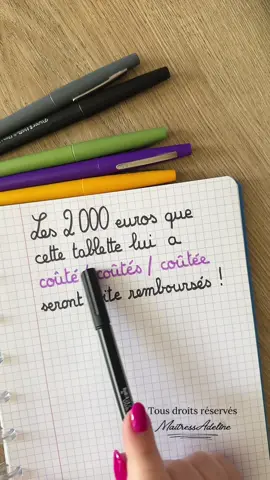 Les 2 000 euros que
cette tablette lui a
coûté / coûtés / coûtée
seront vite remboursés !
Tous droits réservés
MaitressAdeline